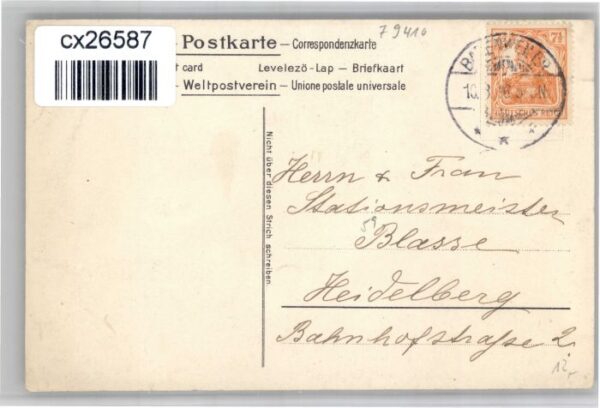 cx26587
79410
Postkarte – Correspondenzkarte
card Levelezö-Lap – Briefkaart
Weltpostverein – Unione postale universale
7½
BADENWEILER
Nicht über diesen Strich schreiben
Herrn & Frau
Stationsmeister
59
Blasse
Heidelberg
Bahnhofstraße 2
12,-